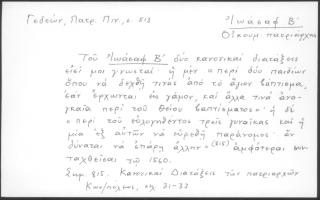 Γεδεών, Πατρ. Πιν., σ. 513
Ἰωάσαφ Β΄
Οἰκουμ. πατριάρχης
Τοῦ Ἰωάσαφ Β΄ δύο κανονικαὶ διατάξεις
εἰσί μοι γνωσταί· ἡ μὲν «περὶ δύο παιδίων
ὅπου νὰ δεχθῇ τινὰς ἀπὸ τὸ ἅγιον βάπτισμα,
ἐὰν ἔρχωνται εἰς γάμον, καὶ ἄλλα τινὰ ἀναγ-
καῖα περὶ τοῦ θείου βαπτίσματος» ἡ δὲ
« περὶ τοῦ εὐλογηθέντος τρεῖς γυναῖκας καὶ ἡ
μία ἐξ αὐτῶν νὰ εὑρεθῇ παράνομος· ἂν
δύναται νὰ ἐπάρῃ ἄλλην» (815) ἀμφότεραι συν-
ταχθεῖσαι τῷ 1560.
Σημ. 815. Κανονικαὶ Διατάξεις τῶν πατριαρχῶν
Κων/πόλεως, σελ. 31-33